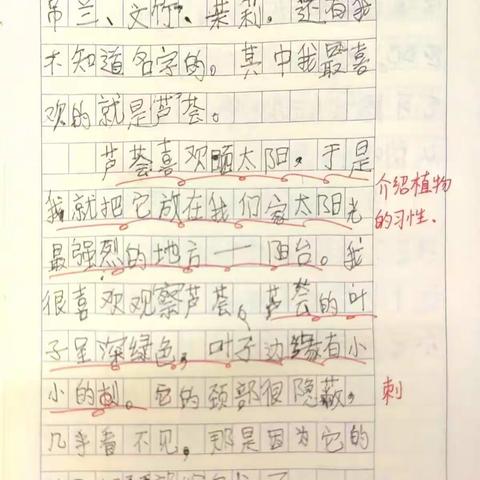 吊兰、文竹、茉莉。还有我
不知道名字的。其中我最喜
欢的就是芦荟。
芦荟喜欢晒太阳，于是
我就把它放在我们家太阳光
最强烈的地方——阳台。我
很喜欢观察芦荟，芦荟的叶
子呈深绿色，叶子边缘有小
小的刺。它的颈部很隐蔽，
几乎看不见。那是因为它的
介绍植物
的习性．
刺